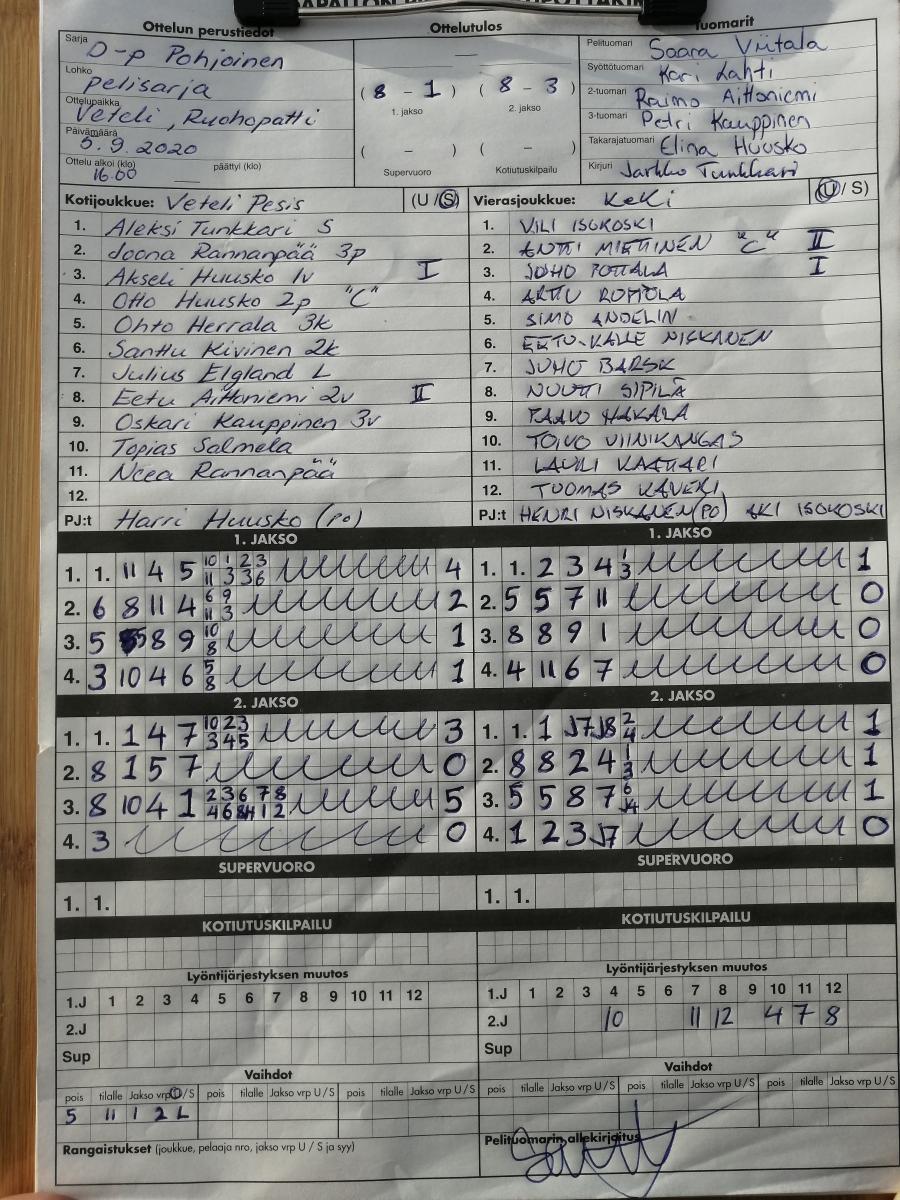 Ottelun perustiedot
Ottelutulos
Tuomarit
Sarja D-p Pohjoinen
Lohko Pelisarja
Ottelupaikka Veteli, Ruohopatti
Päivämäärä 5.9.2020
Ottelu alkoi (klo) 16.00 päättyi (klo)
( 8 - 1 ) ( 8 - 3 )
1. jakso 2. jakso
( - ) ( - )
Supervuoro Kotiutuskilpailu
Pelituomari Saara Viitala
Syöttötuomari Kari Lahti
2-tuomari Raimo Aittoniemi
3-tuomari Petri Kauppinen
Takarajatuomari Elina Huusko
Kirjuri Jarkko Tunkkari
Kotijoukkue: Veteli Pesis (U / S)
1. Aleksi Tunkkari S
2. Joona Rannanpää 3p
3. Akseli Huusko 1v I
4. Otto Huusko 2p "C"
5. Ohto Herrala 3k
6. Santtu Kivinen 2k
7. Julius Elgland L
8. Eetu Aittoniemi 2v II
9. Oskari Kauppinen 3v
10. Topias Salmela
11. Neea Rannanpää
12.
PJ:t Harri Huusko (PO)
Vierasjoukkue: KeKi (U / S)
1. VILI ISOKOSKI
2. ANTTI MIETTINEN "C" II
3. JUHO POTTALA I
4. ARTTU ROMOLA
5. SIMO ANDELIN
6. EETU-KALLE NISKANEN
7. JUHO BARSK
8. NUUTTI SIPILÄ
9. PAAVO HAKALA
10. TOIVO VIINIKANGAS
11. LAURI KAATTARI
12. TUOMAS KAVERI
PJ:t HENRI NISKANEN (PO) AKI ISOKOSKI
1. JAKSO
1. 1. 11 4 5 10 1 2 3 4
11 3 3 6
2. 6 8 11 4 6 9 2
11 3
3. 5 8 9 10 1
8
4. 3 10 4 6 5 1
8
1. JAKSO
1. 1. 2 3 4 1 1
3
2. 5 5 7 11 0
3. 8 8 9 1 0
4. 4 11 6 7 0
2. JAKSO
1. 1. 1 4 7 10 2 3 3
3 4 5
2. 8 1 5 7 0
3. 8 10 4 1 2 3 6 7 8 5
4 6 8 1 2
4. 3 0
2. JAKSO
1. 1. 1 J7 J8 2 1
4
2. 8 8 2 4 1 1
3
3. 5 5 8 7 6 1
J4
4. 1 2 3 J7 0
SUPERVUORO
1. 1.
SUPERVUORO
1. 1.
KOTIUTUSKILPAILU
KOTIUTUSKILPAILU
Lyöntijärjestyksen muutos
1.J 1 2 3 4 5 6 7 8 9 10 11 12
2.J
Sup
Lyöntijärjestyksen muutos
1.J 1 2 3 4 5 6 7 8 9 10 11 12
2.J 10 11 12 4 7 8
Sup
Vaihdot
pois tilalle Jakso vrp U/S pois tilalle Jakso vrp U/S pois tilalle Jakso vrp U/S
5 11 1 2 L
Vaihdot
pois tilalle Jakso vrp U/S pois tilalle Jakso vrp U/S pois tilalle Jakso vrp U/S
Rangaistukset (joukkue, pelaaja nro, jakso vrp U / S ja syy)
Pelituomarin allekirjoitus